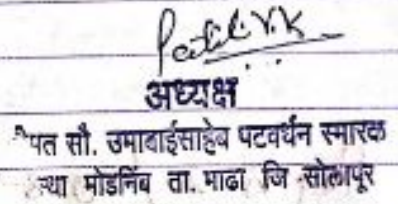 Patil V.K
अध्यक्ष
पत सौ. उमाबाईसाहेब पटवर्धन स्मारक
था मोडनिंब ता. माढा जि सोलापूर